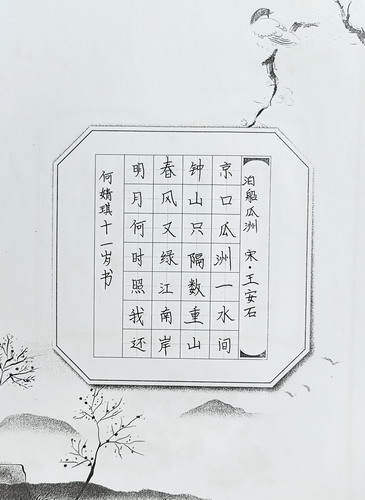 泊船瓜洲 宋·王安石
京口瓜洲一水间
钟山只隔数重山
春风又绿江南岸
明月何时照我还
何婧琪十一岁书